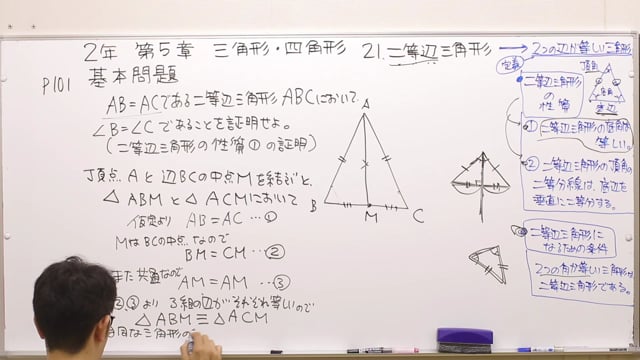 2年 第5章 三角形・四角形 21.二等辺三角形 → 2つの辺が等しい三角形
定義
P101 基本問題
AB=ACである二等辺三角形ABCにおいて
∠B=∠Cであることを証明せよ。
(二等辺三角形の性質①の証明)
頂点Aと辺BCの中点Mを結ぶと、
△ABMと△ACMにおいて
仮定より AB=AC…①
MはBCの中点なので
BM=CM…②
また共通なので
AM=AM…③
②,③より 3組の辺がそれぞれ等しいので
△ABM≡△ACM
同な三角形の
A
B
M
C
頂角
底角
底辺
二等辺三角形
の
性質
①二等辺三角形の底角は
等しい。
②二等辺三角形の頂角の
二等分線は、底辺を
垂直に二等分する。
二等辺三角形に
なるための条件
2つの角が等しい三角形は
二等辺三角形である。